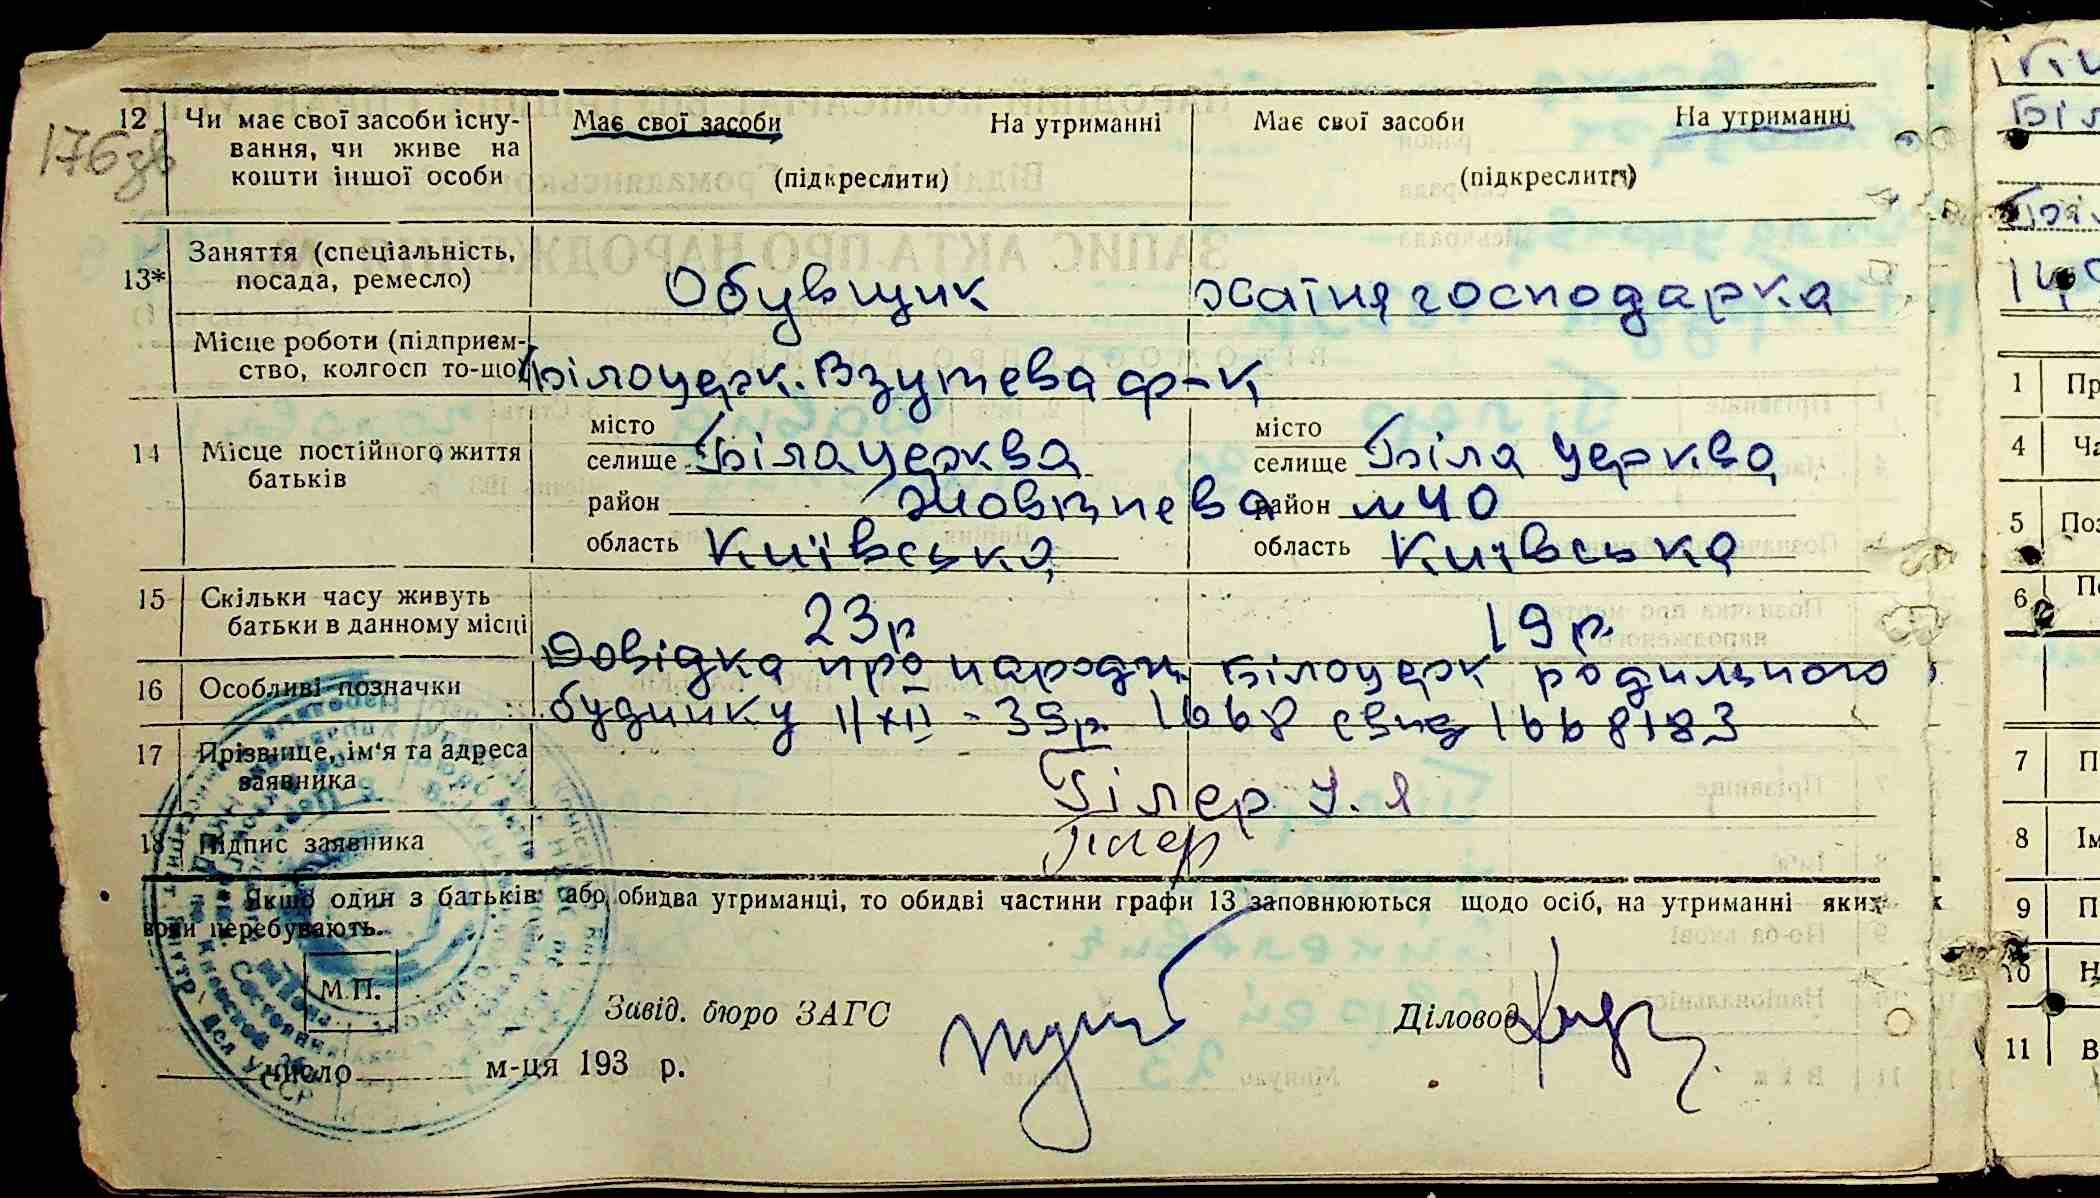 176зв
12 Чи має свої засоби існу- Має свої засоби На утриманні Має свої засоби На утриманні
вання, чи живе на
кошти іншої особи (підкреслити) (підкреслити)
13* Заняття (спеціальність,
посада, ремесло) Обувщик хатня господарка
Місце роботи (підприєм-
ство, колгосп то-що) Білоцерк. Взутева ф-к
14 Місце постійного життя
батьків
місто
селище Біла церква
район Жовтнева
область Київська
місто
селище Біла церква
район №40
область Київська
15 Скільки часу живуть
батьки в данному місці 23р 19р.
16 Особливі позначки Довідка про народж. Білоцерк родильного
будинку 11/XII-35р. 1668 свид 1668183
17 Прізвище, ім'я та адреса
заявника Гілер У. Я
18 Підпис заявника Гілер
Якщо один з батьків або обидва утриманці, то обидві частини графи 13 заповнюються щодо осіб, на утриманні яких
вони перебувають.
М.П.
Завід. бюро ЗАГС Діловод
число м-ця 193 р.
Біл
1 Пр
4 Ча
5 Поз
6
7 П
8 Ім
9 П
10 Н
11 В